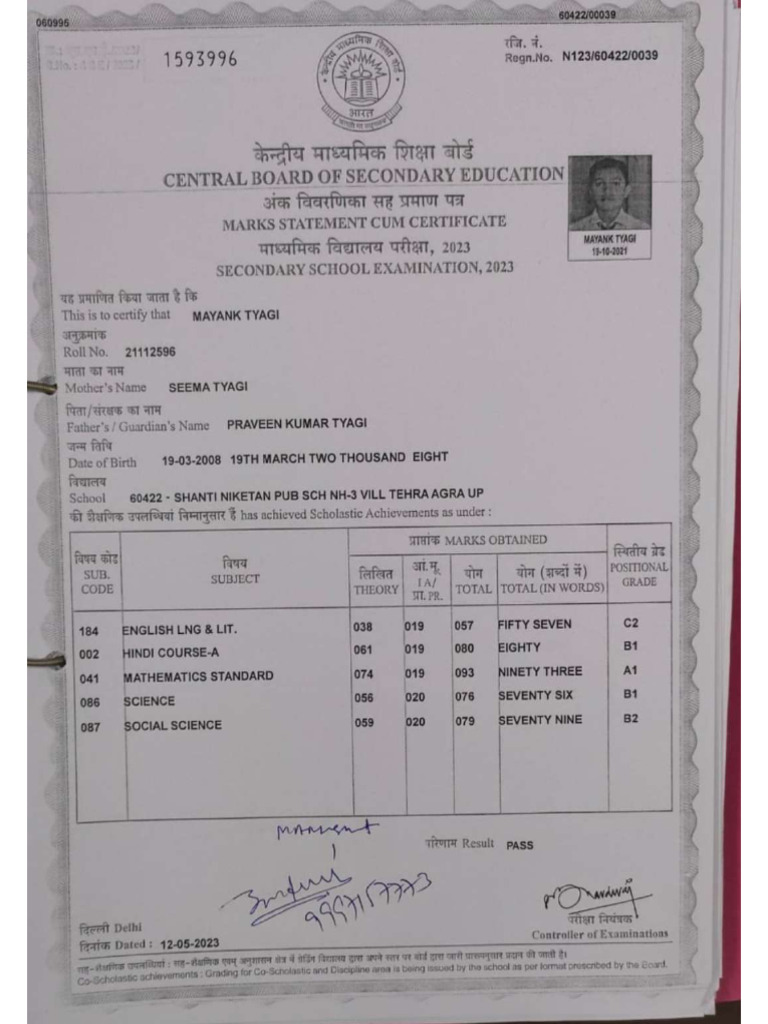 060995
60422/00039
1593996
रजि. नं.
Regn.No. N123/60422/0039
केन्द्रीय माध्यमिक शिक्षा बोर्ड
भारत
केन्द्रीय माध्यमिक शिक्षा बोर्ड
CENTRAL BOARD OF SECONDARY EDUCATION
अंक विवरणिका सह प्रमाण पत्र
MARKS STATEMENT CUM CERTIFICATE
माध्यमिक विद्यालय परीक्षा, 2023
SECONDARY SCHOOL EXAMINATION, 2023
MAYANK TYAGI
19-10-2021
यह प्रमाणित किया जाता है कि
This is to certify that MAYANK TYAGI
अनुक्रमांक
Roll No. 21112596
माता का नाम
Mother's Name SEEMA TYAGI
पिता/संरक्षक का नाम
Father's / Guardian's Name PRAVEEN KUMAR TYAGI
जन्म तिथि
Date of Birth 19-03-2008 19TH MARCH TWO THOUSAND EIGHT
विद्यालय
School 60422 - SHANTI NIKETAN PUB SCH NH-3 VILL TEHRA AGRA UP
की शैक्षणिक उपलब्धियां निम्नानुसार हैं has achieved Scholastic Achievements as under :
प्राप्तांक MARKS OBTAINED
विषय कोड SUB. CODE
विषय SUBJECT
लिखित THEORY
आं.मू. I A/ प्रा. PR.
योग TOTAL
योग (शब्दों में) TOTAL (IN WORDS)
स्थितीय ग्रेड POSITIONAL GRADE
184 ENGLISH LNG & LIT. 038 019 057 FIFTY SEVEN C2
002 HINDI COURSE-A 061 019 080 EIGHTY B1
041 MATHEMATICS STANDARD 074 019 093 NINETY THREE A1
086 SCIENCE 056 020 076 SEVENTY SIX B1
087 SOCIAL SCIENCE 059 020 079 SEVENTY NINE B2
परिणाम Result PASS
दिल्ली Delhi
दिनांक Dated : 12-05-2023
परीक्षा नियंत्रक
Controller of Examinations
सह-शैक्षणिक उपलब्धियां : सह-शैक्षणिक एवम् अनुशासन क्षेत्र में ग्रेडिंग विद्यालय द्वारा अपने स्तर पर बोर्ड द्वारा जारी प्रारूपनुसार प्रदान की जाती है।
Co-Scholastic achievements : Grading for Co-Scholastic and Discipline area is being issued by the school as per format prescribed by the Board.